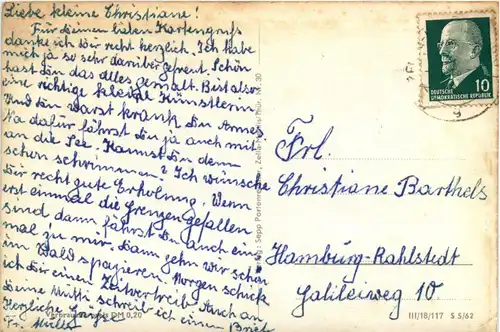 Liebe kleine Christiane!
Für Deinen lieben Kartengruß
danke ich Dir recht herzlich. Ich habe
mich ja so sehr darüber gefreut. Schön
hast Du das alles gemalt. Bist also
eine richtige kleine Künstlerin
Und Du warst krank Du Armes
Na dafür fährst Du ja auch mit
an die See. Kannst Du denn
schon schwimmen? Ich wünsche
Dir recht gute Erholung. Wenn
erst einmal die Grenzen gefallen
sind dann fährst Du auch ein
mal zu mir. Dann gehn wir schön
im Wald spazieren. Morgen schick
ich Dir einen Zeitvertreib. Auch an
Deine Mutti schreib ich einen Brief
Herzliche Grüße
Fr. Müller
Verbraucherpreis DM 0,20
DEUTSCHE
DEMOKRATISCHE REPUBLIK
10
Frl.
Christiane Barthels
Hamburg-Rahlstedt
Galileiweg 10.
III/18/117 S 5/62